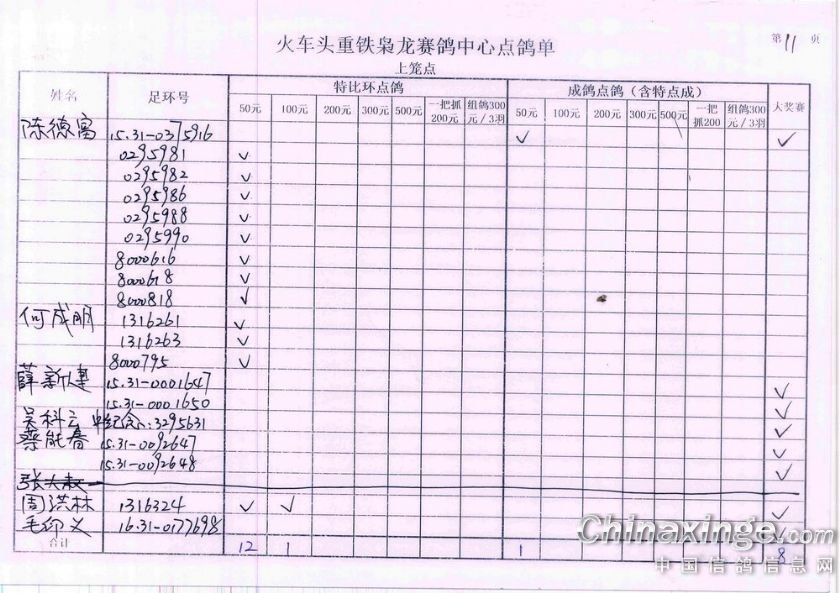 第 11 页
火车头重铁枭龙赛鸽中心点鸽单
上笼点
姓名 足环号 特比环点鸽 成鸽点鸽（含特点成） 大奖赛
50元 100元 200元 300元 500元 一把抓200元 组鸽300元/3羽 50元 100元 200元 300元 500元 一把抓200 组鸽300元/3羽
陈德富 15.31-0375916 ✓ ✓
0295981 ✓
0295982 ✓
0295986 ✓
0295988 ✓
0295990 ✓
8000616 ✓
8000618 ✓
8000818 ✓
何成朋 1316261 ✓
1316263 ✓
8000795 ✓
薛新建 15.31-0001647 ✓
15.31-0001650 ✓
吴科云 中纪念:3295631 ✓
蔡能春 15.31-0092647 ✓
15.31-0092648 ✓
周洪林 1316324 ✓ ✓ ✓
毛仰义 16.31-0177698 ✓
合计 12 1 1 8
Chinaxinge.com
中国信鸽信息网